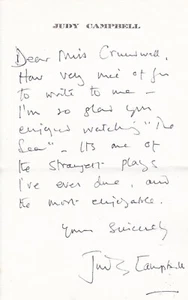 JUDY CAMPBELL
Dear Miss
How very nice of you
to write to me –
I'm so glad you
enjoyed watching "The
Seen" – Its one of
the strangest plays
I've ever done, and
the most enjoyable.
Yours Sincerely
Judy Campbell